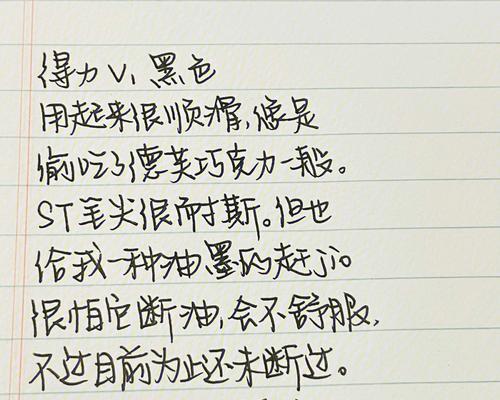 得力V1黑色
用起来很顺滑,像是
偷吃了德芙巧克力一般。
ST笔尖很耐打斯。但也
给我一种油墨的赶jio
很怕它断油,会不舒服,
不过目前为止还未断过。